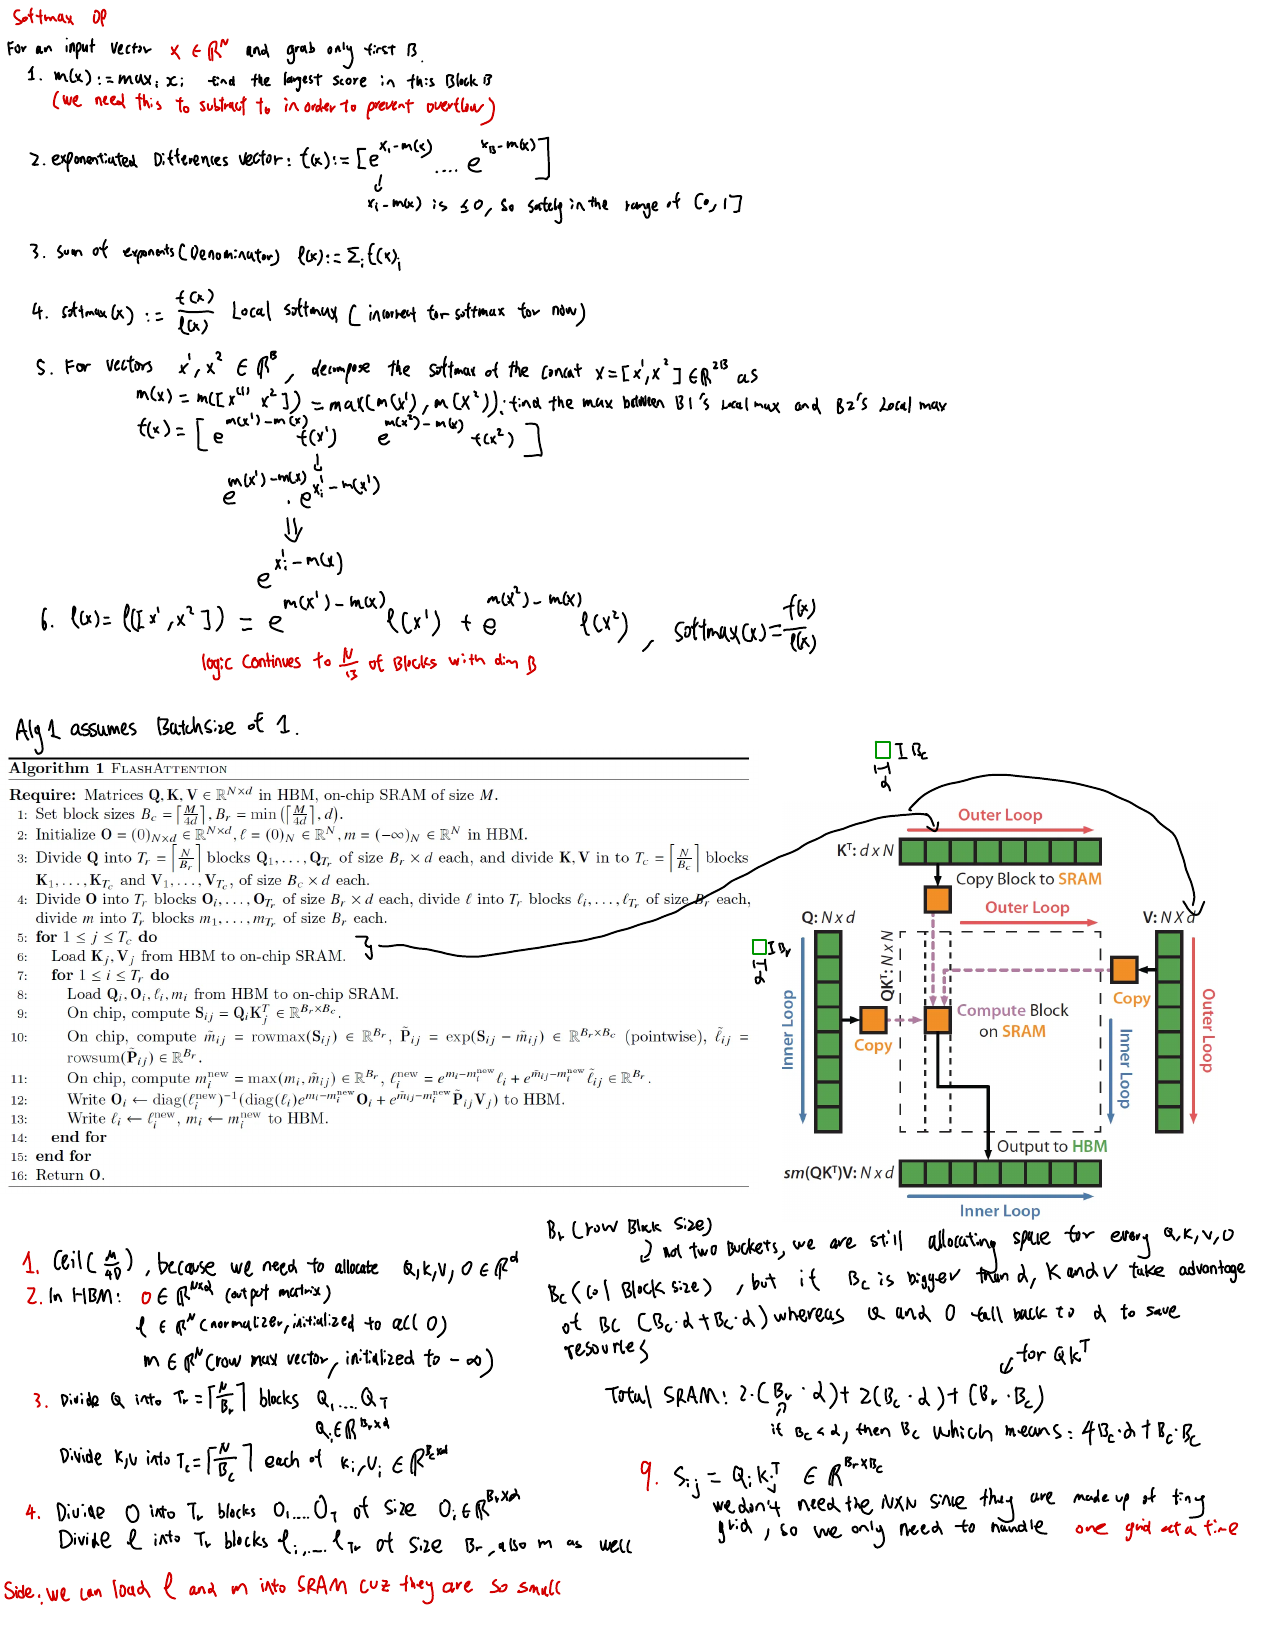 Softmax OP
For an input vector x ∈ ℝᴺ and grab only first B.
1. m(x) := maxᵢ xᵢ find the largest score in this Block B
(we need this to subtract to in order to prevent overflow)
2. exponentiated Differences vector: f(x) := [e^{x₁-m(x)} .... e^{x_B-m(x)}]
↓
xᵢ-m(x) is ≤0, so safely in the range of [0,1]
3. sum of exponents (Denominator) ℓ(x) := Σᵢ f(x)ᵢ
4. softmax(x) := f(x)/ℓ(x) Local softmax (incorrect for softmax for now)
5. For vectors x¹, x² ∈ ℝᴮ, decompose the softmax of the concat x = [x¹, x²] ∈ ℝ²ᴮ as
m(x) = m([x⁽¹⁾ x²]) = max(m(x¹), m(x²)): find the max between B1's Local max and B2's Local max
f(x) = [e^{m(x¹)-m(x)} f(x¹) e^{m(x²)-m(x)} f(x²)]
↓
e^{m(x¹)-m(x)} · e^{xᵢ¹-m(x¹)}
⇓
e^{xᵢ¹-m(x)}
6. ℓ(x) = ℓ([x¹, x²]) = e^{m(x¹)-m(x)} ℓ(x¹) + e^{m(x²)-m(x)} ℓ(x²), softmax(x) = f(x)/ℓ(x)
logic continues to N/B of Blocks with dim B
Alg 1 assumes Batchsize of 1.
Algorithm 1 FLASHATTENTION
Require: Matrices Q, K, V ∈ ℝ^{N×d} in HBM, on-chip SRAM of size M.
1: Set block sizes B_c = ⌈M/4d⌉, B_r = min(⌈M/4d⌉, d).
2: Initialize O = (0)_{N×d} ∈ ℝ^{N×d}, ℓ = (0)_N ∈ ℝ^N, m = (-∞)_N ∈ ℝ^N in HBM.
3: Divide Q into T_r = ⌈N/B_r⌉ blocks Q₁, . . . , Q_{T_r} of size B_r × d each, and divide K, V in to T_c = ⌈N/B_c⌉ blocks
K₁, . . . , K_{T_c} and V₁, . . . , V_{T_c}, of size B_c × d each.
4: Divide O into T_r blocks O_i, . . . , O_{T_r} of size B_r × d each, divide ℓ into T_r blocks ℓ_i, . . . , ℓ_{T_r} of size B_r each,
divide m into T_r blocks m₁, . . . , m_{T_r} of size B_r each.
5: for 1 ≤ j ≤ T_c do
6: Load K_j, V_j from HBM to on-chip SRAM.
7: for 1 ≤ i ≤ T_r do
8: Load Q_i, O_i, ℓ_i, m_i from HBM to on-chip SRAM.
9: On chip, compute S_{ij} = Q_i K_j^T ∈ ℝ^{B_r×B_c}.
10: On chip, compute m̃_{ij} = rowmax(S_{ij}) ∈ ℝ^{B_r}, P̃_{ij} = exp(S_{ij} - m̃_{ij}) ∈ ℝ^{B_r×B_c} (pointwise), ℓ̃_{ij} =
rowsum(P̃_{ij}) ∈ ℝ^{B_r}.
11: On chip, compute m_i^{new} = max(m_i, m̃_{ij}) ∈ ℝ^{B_r}, ℓ_i^{new} = e^{m_i-m_i^{new}} ℓ_i + e^{m̃_{ij}-m_i^{new}} ℓ̃_{ij} ∈ ℝ^{B_r}.
12: Write O_i ← diag(ℓ_i^{new})^{-1}(diag(ℓ_i)e^{m_i-m_i^{new}} O_i + e^{m̃_{ij}-m_i^{new}} P̃_{ij}V_j) to HBM.
13: Write ℓ_i ← ℓ_i^{new}, m_i ← m_i^{new} to HBM.
14: end for
15: end for
16: Return O.
B_c
d
Outer Loop
Kᵀ: d x N
Copy Block to SRAM
Outer Loop
Q: N x d
V: N X d
B_r
d
QKᵀ: N x N
Copy
Compute Block
on SRAM
Copy
Inner Loop
Inner Loop
Outer Loop
Output to HBM
sm(QKᵀ)V: N x d
Inner Loop
1. Ceil(M/4D), because we need to allocate Q,K,V,O ∈ ℝᵈ
2. In HBM: O ∈ ℝ^{N×d} (output matrix)
ℓ ∈ ℝᴺ (normalizer, initialized to all 0)
m ∈ ℝᴺ (row max vector, initialized to -∞)
3. Divide Q into Tr = ⌈N/Br⌉ blocks Q₁....Q_T
Qᵢ ∈ ℝ^{Br×d}
Divide K,V into Tc = ⌈N/Bc⌉ each of Kᵢ,Vᵢ ∈ ℝ^{Bc×d}
4. Divide O into Tr blocks O₁....O_T of size Oᵢ ∈ ℝ^{Br×d}
Divide ℓ into Tr blocks ℓᵢ,....ℓ_{Tr} of size Br, also m as well
Side: we can load ℓ and m into SRAM cuz they are so small
Br (row Block size)
↪ not two buckets, we are still allocating space for every Q,K,V,O
Bc (col Block size), but if Bc is bigger than d, K and V take advantage
of BC (Bc·d+Bc·d) whereas Q and O fall back to d to save
resources
for QKᵀ
Total SRAM: 2·(Br·d)+2(Bc·d)+(Br·Bc)
if Bc<d, then Bc which means: 4Bc·d+Bc·Bc
9. Sᵢⱼ = QᵢKⱼᵀ ∈ ℝ^{Br×Bc}
we don't need the NXN since they are made up of tiny
grid, so we only need to handle one grid at a time